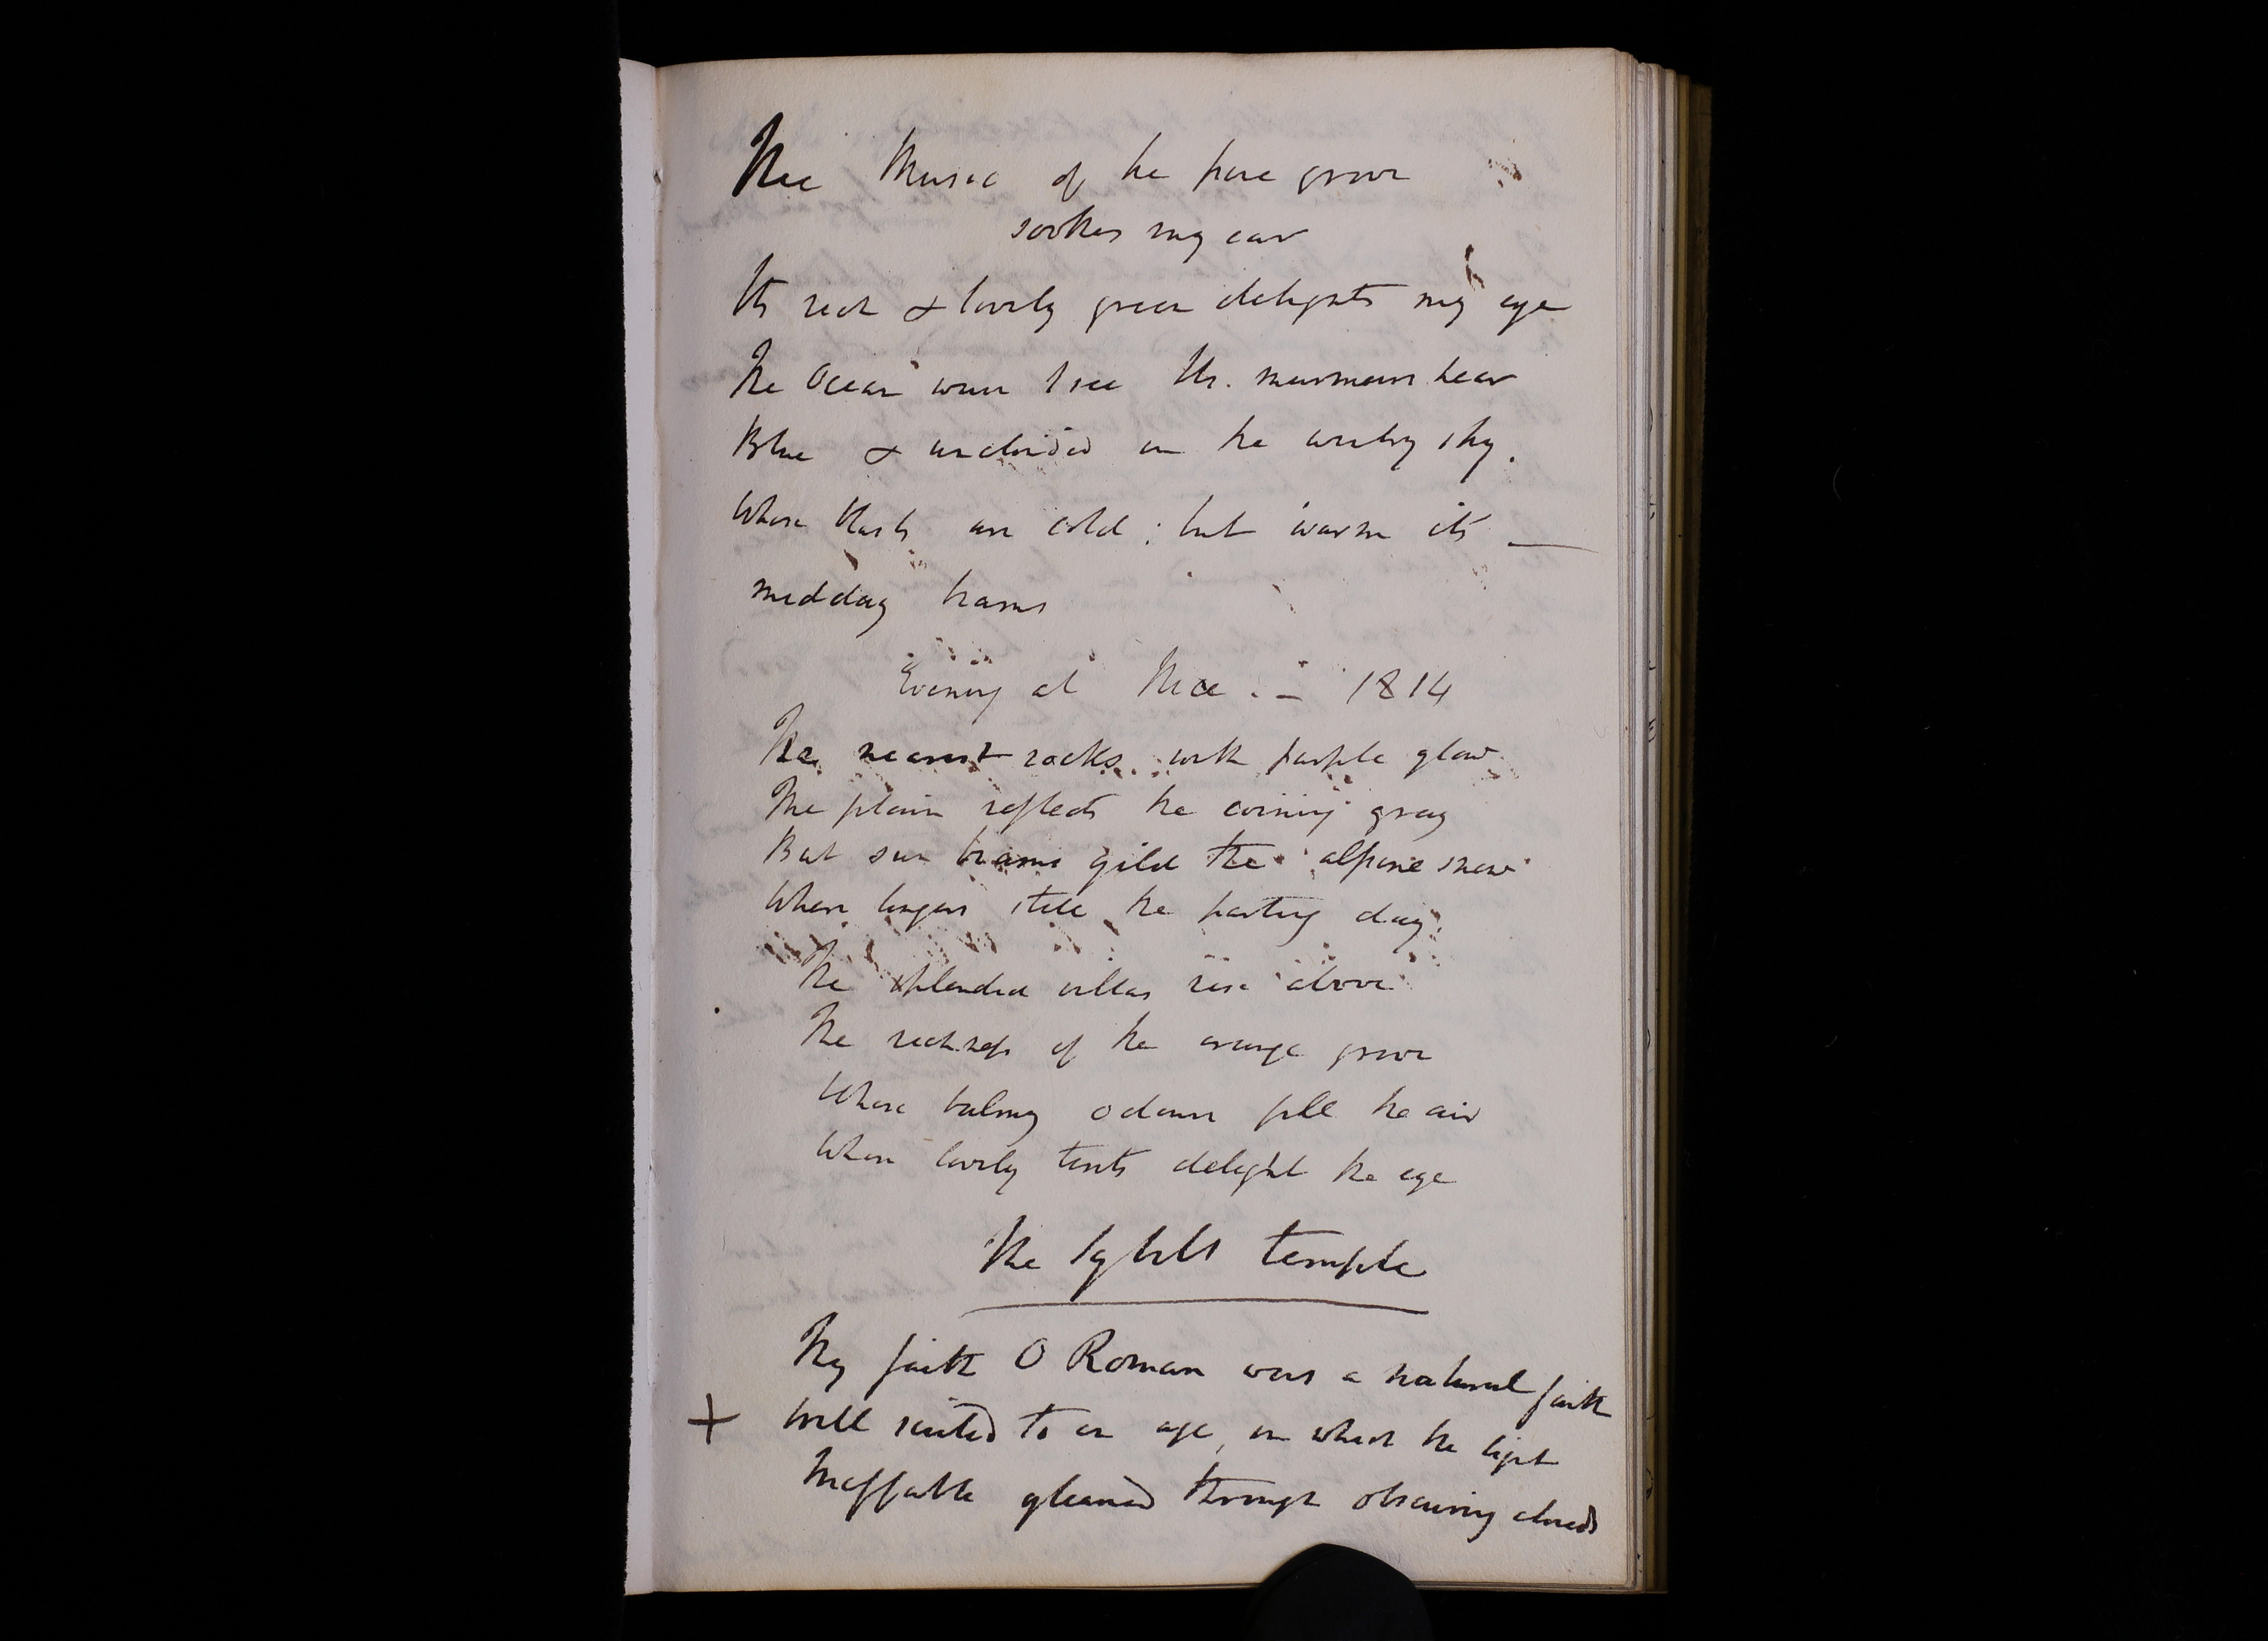 The Music of the pine grove
soothes my ear
Its rich & lovely green delights my eye
The Ocean wave I see Its. murmurs hear
Blue & unclouded in the wintry sky.
Whose blasts are cold; but warm its —
midday beams
Evening at Nice. — 1814
The nearest rocks with purple glow
The plain reflects the evening gray
But sun beams gild the alpine snow
Where lingers still the parting day.
The splendid villas rise above
The richness of the orange grove
Whose balmy odours fill the air
Whose lovely tints delight the eye
The Sybils temple
Thy faith O Roman was a natural faith
+ Well suited to an age, in which the light
Ineffable gleamed through obscuring clouds